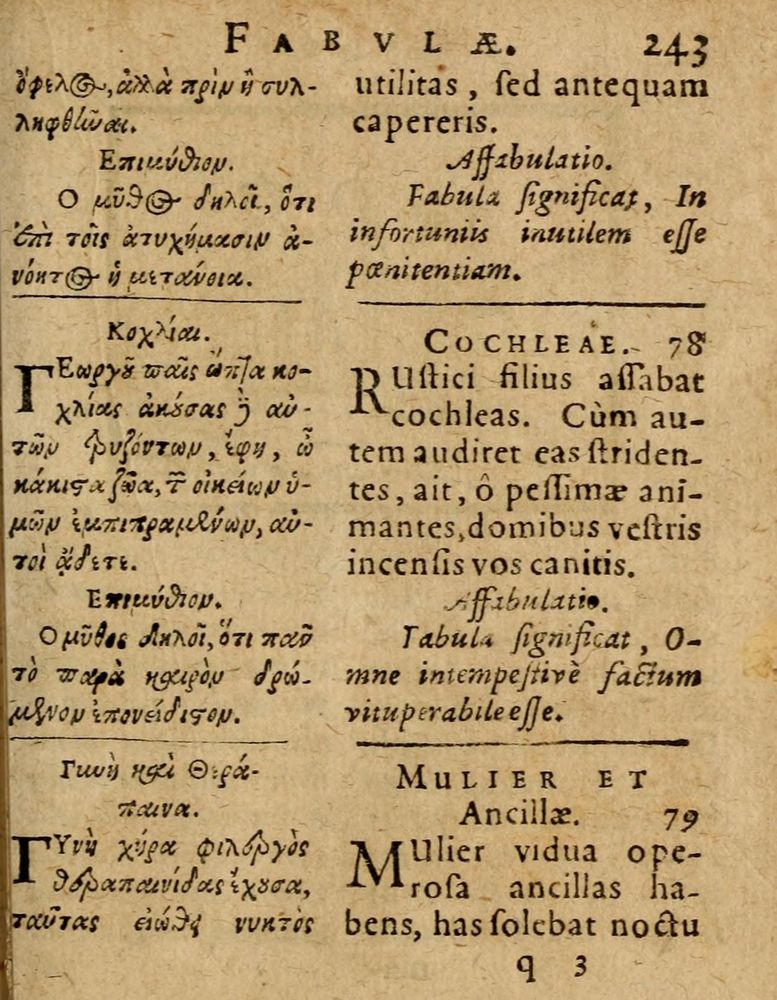 FABVLÆ. 243
ὄφελος, ἀλλὰ πρὶν ἢ συλ-
ληφθῆναι.
Επιμύθιον.
Ο μῦθος δηλοῖ, ὅτι
ἐπὶ τοῖς ἀτυχήμασιν ἀ-
νόητος ἡ μετάνοια.
Κοχλίαι.
ΓΕωργοῦ παῖς ὤπτα κο-
χλίας ἀκούσας δὲ αὐ-
τῶν τρυζόντων, ἔφη, ὦ
κάκιστα ζῶα, τῶν οἰκείων ὑ-
μῶν ἐμπιπραμένων, αὐ-
τοὶ ᾄδετε.
Επιμύθιον.
Ο μῦθος δηλοῖ, ὅτι πᾶν
τὸ παρὰ καιρὸν δρώ-
μενον ἐπονείδιστον.
Γυνὴ καὶ Θερά-
παινα.
ΓΥνὴ χήρα φιλεργὸς
θεραπαινίδας ἔχουσα,
ταῦτας εἰώθει νυκτὸς
utilitas, ſed antequam
capereris.
Affabulatio.
Fabula ſignificat, In
infortuniis inutilem eſſe
pœnitentiam.
COCHLEAE. 78
RUſtici filius aſſabat
cochleas. Cùm au-
tem audiret eas ſtriden-
tes, ait, ô peſſimæ ani-
mantes, domibus veſtris
incenſis vos canitis.
Affabulatio.
Fabula ſignificat, O-
mne intempeſtivè factum
vituperabile eſſe.
MULIER ET
Ancillæ. 79
MUlier vidua ope-
roſa ancillas ha-
bens, has ſolebat noctu
q 3